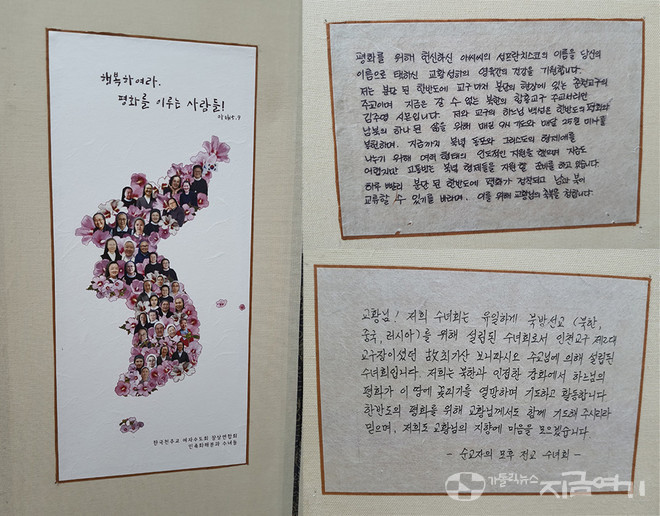 행복하여라,
평화를 이루는 사람들!
마태5,9
한국천주교 여자수도회 장상연합회
민족화해분과 수녀들
평화를 위해 헌신하신 아씨시의 성프란치스코의 이름을 당신의
이름으로 택하신 교황성하의 영육간의 건강을 기원합니다.
저는 분단 된 한반도에 교구마저 분단의 현장에 있는 춘천교구의
주교이며 지금은 갈 수 없는 북한의 함흥교구 주교서리인
김주영 시몬입니다. 저와 교구의 하느님 백성은 한반도의 평화와
남북의 하나 된 삶을 위해 매일 9시 기도와 매달 25일 미사를
봉헌하며, 지금까지 북녘 동포와 그리스도의 형제애를
나누기 위해 여러 형태의 인도적인 지원을 했으며 지금도
어렵지만 고통받는 북녘 형제들을 지원할 준비를 하고 있습니다.
하루 빨리 분단 된 한반도에 평화가 정착되고 남과 북이
교류할 수 있기를 바라며, 이를 위해 교황님의 축복을 청합니다.
교황님! 저희 수녀회는 유일하게 북방선교 (북한,
중국, 러시아)를 위해 설립된 수녀회로서 인천교구 제2대
교구장이셨던 故최기산 보니파시오 주교님에 의해 설립된
수녀회입니다. 저희는 북한과 인접한 강화에서 하느님의
평화가 이 땅에 꽃피기를 열망하며 기도하고 활동합니다
한반도의 평화를 위해 교황님께서도 함께 기도해 주시리라
믿으며, 저희도 교황님의 지향에 마음을 모으겠습니다.
- 순교자의 모후 전교 수녀회 -
가톨릭뉴스 지금여기